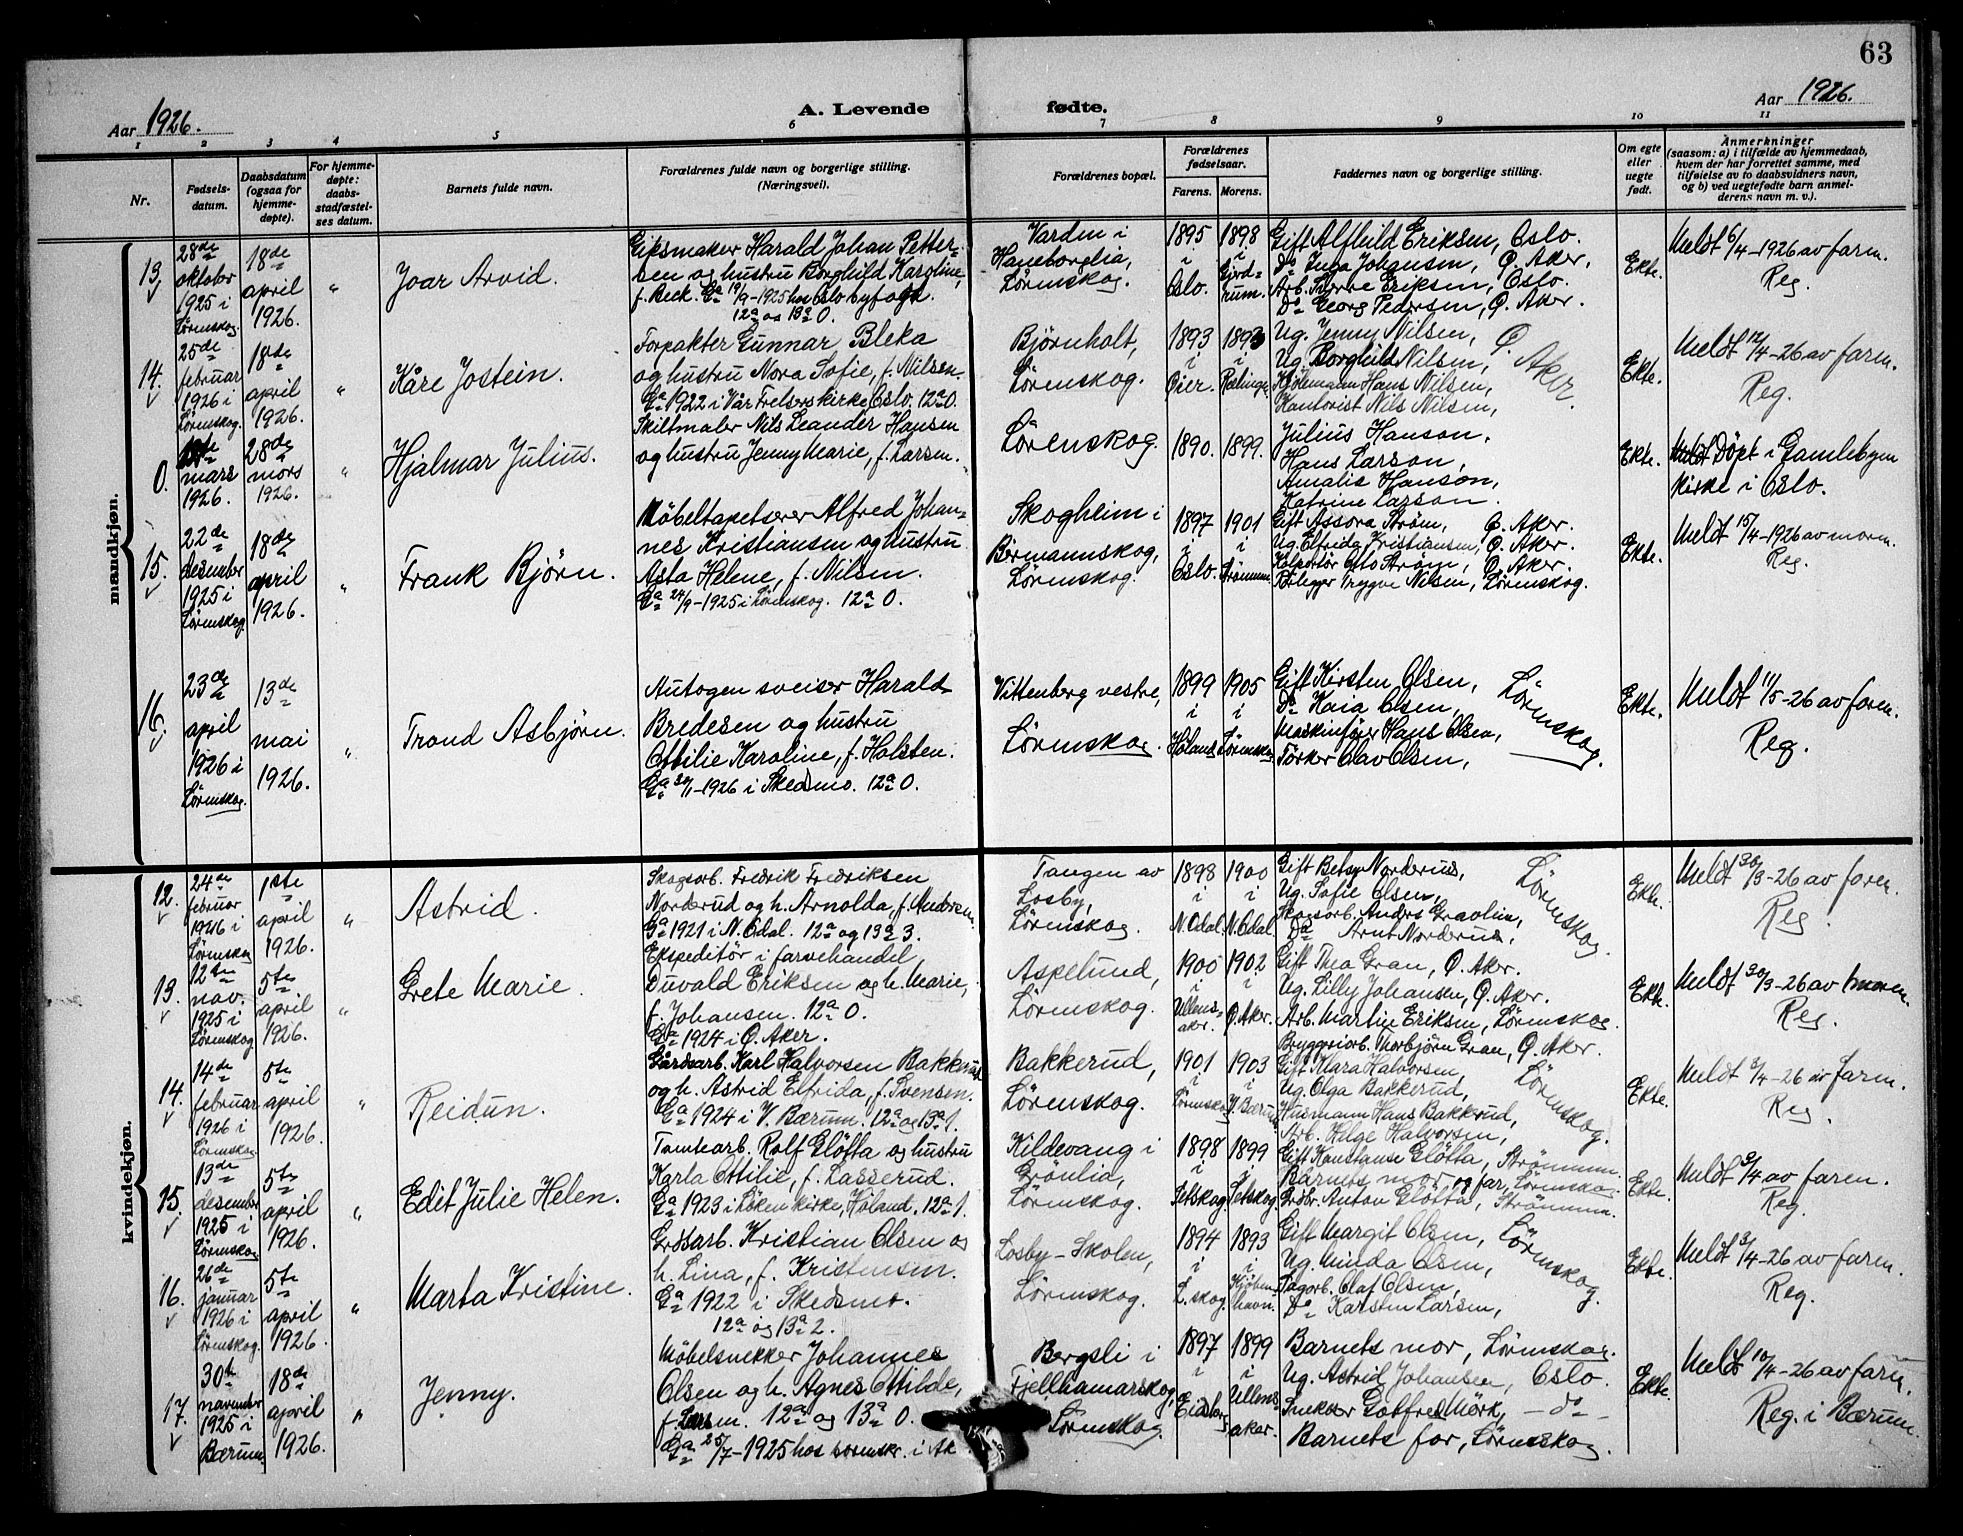 63
Aar 1926.
A. Levende fødte.
Aar 1926.
1 2 3 4 5 6 7 8 9 10 11
Nr.
Fødsels-
datum.
Daabsdatum
(ogsaa for
hjemme-
døpte).
For hjemme-
døpte:
daabs-
stadfæstel-
ses datum.
Barnets fulde navn.
Forældrenes fulde navn og borgerlige stilling.
(Næringsvei).
Forældrenes bopæl.
Forældrenes
fødselsaar.
Farens. Morens.
Faddernes navn og borgerlige stilling.
Om egte
eller
uegte
født.
Anmerkninger
(saasom: a) i tilfælde av hjemmedaab,
hvem der har forrettet samme, med
tilføielse av to daabsvidners navn,
og b) ved uegtefødte barn anmel-
derens navn m. v.).
mandkjøn.
13.
28de
oktober
1925 i
Lørenskog.
18de
april
1926.
"
Joar Arvid.
Gipsmaker Harald Johan Petter-
sen og hustru Borghild Karoline,
f. Beck. Ga 19/9-1925 hos Oslo byfogd.
12a og 13a 0.
Varden i
Haneborglia,
Lørenskog.
1895
i
Oslo.
1898
i
Gjerd-
rum.
Gift Alfhild Eriksen, Oslo.
Do Inga Johansen, Ø. Aker.
Arb. Sverre Eriksen, Oslo.
Do Georg Pedersen, Ø. Aker.
Ekte.
Meldt 6/4-1926 av faren.
Reg.
14.
25de
februar
1926 i
Lørenskog.
18de
april
1926.
"
Kåre Jostein.
Forpakter Gunnar Bleka
og hustru Nora Sofie, f. Nilsen.
Ga 1922 i Vår Frelsers kirke, Oslo. 12a 0.
Bjørnholt,
Lørenskog.
1893
i
Øier.
1893
i
Rælingen.
Ug. Jenny Nilsen,
Ug. Borghild Nilsen,
Hans Nilsen,
Kontorist Nils Nilsen,
Ø. Aker.
Ekte.
Meldt 12/4-26 av faren.
Reg.
0.
mars
1926.
28de
mars
1926.
"
Hjalmar Julius.
Skiltmaler Nils Leander Hansen
og hustru Jenny Marie, f. Larsen.
Lørenskog.
1890.
1899.
Julius Hanson,
Hans Larson,
Amalie Hanson,
Katrine Larson.
Ekte.
Døpt i Gamlebyen
kirke i Oslo.
15.
22de
desember
1925 i
Lørenskog
18de
april
1926.
"
Frank Bjørn.
Møbeltapetserer Alfred Johan-
nes Kristiansen og hustru
Asta Helene, f. Nilsen.
Ga 24/9-1925 i Lørenskog. 12a 0.
Skogheim i
Bermannskog,
Lørenskog.
1897
i
Oslo.
1901
i
Strømmen
Gift Assora Strøm, Ø. Aker.
Ug. Elfrida Kristiansen, Ø. Aker.
Kolportør Otto Strøm, Ø. Aker.
Rørlegger Trygve Nilsen, Lørenskog.
Ekte.
Meldt 15/4-1926 av moren.
Reg.
16.
23de
april
1926 i
Lørenskog.
13de
mai
1926.
"
Trond Asbjørn.
Autogen sveiser Harald
Bredesen og hustru
Ottilie Karoline, f. Holsten.
Ga 30/1-1926 i Skedsmo. 12a 0.
Vittenberg vestre,
Lørenskog.
1899
i
Høland
1905
i
Lørenskog
Gift Kirsten Olsen,
Do Kaia Olsen,
Maskinfører Hans Olsen,
Tørker Olav Olsen,
Lørenskog.
Ekte.
Meldt 11/5-26 av faren.
Reg.
kvindekjøn.
12.
24de
februar
1926 i
Lørenskog
1ste
april
1926.
"
Astrid.
Skogsarb. Fredrik Fredriksen
Norderud og h. Arnolda, f. Andresen
Ga 1921 i N. Odal. 12a og 13a 3.
Tangen av
Losby,
Lørenskog.
1898
i
N. Odal.
1900
i
N. Odal.
Gift Betsy Norderud,
Ug. Sofie Olsen,
Skogsarb. Anders Gravlien,
Do Arnt Norderud,
Lørenskog.
Ekte.
Meldt 30/3-26 av faren.
Reg.
13.
12te
nov.
1925 i
Lørenskog
5te
april
1926.
"
Grete Marie.
Ekspeditør i farvehandel
Duvald Eriksen og h. Marie,
f. Johansen. 12a 0.
Ga 1924 i Ø. Aker.
Aspelund,
Lørenskog.
1900
i
Ullens-
aker.
1902
i
Ø. Aker.
Gift Thea Gran, Ø. Aker.
Ug. Lilly Johansen, Ø. Aker.
Arb. Martin Eriksen, Lørenskog.
Bryggeriarb. Morbjørn Gran, Ø. Aker.
Ekte.
Meldt 30/3-26 av moren.
Reg.
14.
14de
februar
1926 i
Lørenskog
5te
april
1926.
"
Reidun.
Gårdsarb. Karl Halvorsen Bakkerud
og h. Astrid Elfrida, f. Svensen.
Ga 1924 i V. Bærum. 12a og 13a 1.
Bakkerud,
Lørenskog.
1901
i
Lørenskog
1903
i
V. Bærum
Gift Mara Halvorsen,
Ug. Olga Bakkerud,
Husmann Hans Bakkerud,
Arb. Helge Halvorsen,
Lørenskog.
Ekte.
Meldt 3/4-26 av faren.
Reg
15.
13de
desember
1925 i
Lørenskog
5te
april
1926.
"
Edit Julie Helen.
Tomtearb. Rolf Gløtta og hustru
Karla Ottilie, f. Lasserud.
Ga 1923 i Løken kirke, Høland. 12a 1.
Kildevang i
Grönlia,
Lørenskog.
1898
i
Setskog
1899
i
Setskog
Gift Konstanse Gløtta, Strømmen.
Barnets mor og far, Lørenskog.
Grdbr. Anton Gløtta, Strømmen.
Ekte.
Meldt 3/4 av faren.
Reg.
16.
26de
januar
1926 i
Lørenskog.
5te
april
1926.
"
Marta Kristine.
Grdsarb. Kristian Olsen og
h. Lina, f. Kristensen.
Ga 1922 i Skedsmo.
12a og 13a 2.
Losby-Skolen,
Lørenskog.
1894
i
L.skog.
1893
i
Kjøben-
havn.
Gift Margit Olsen,
Ug. Minda Olsen,
Dagarb. Olaf Olsen,
Do Karsten Larsen,
Lørenskog.
Ekte.
Meldt 3/4-26 av faren.
Reg.
17.
30te
november
1925 i
Bærum
18de
april
1926.
"
Jenny.
Møbelsnekker Johannes
Olsen og h. Agnes Otilde,
12a og 13a 0.
Ga 25/7-1925 hos sorenskr. i Ak
Bergsli i
Fjellhamarskog,
Lørenskog
1897
i
Eidsberg
1899
i
Ullens-
aker.
Barnets mor, Lørenskog.
Ug. Astrid Johansen, Oslo.
Snekker Gotfred Mørk, — do —
Barnets far, Lørenskog.
Ekte.
Meldt 10/4-26 av faren.
Reg. i Bærum.